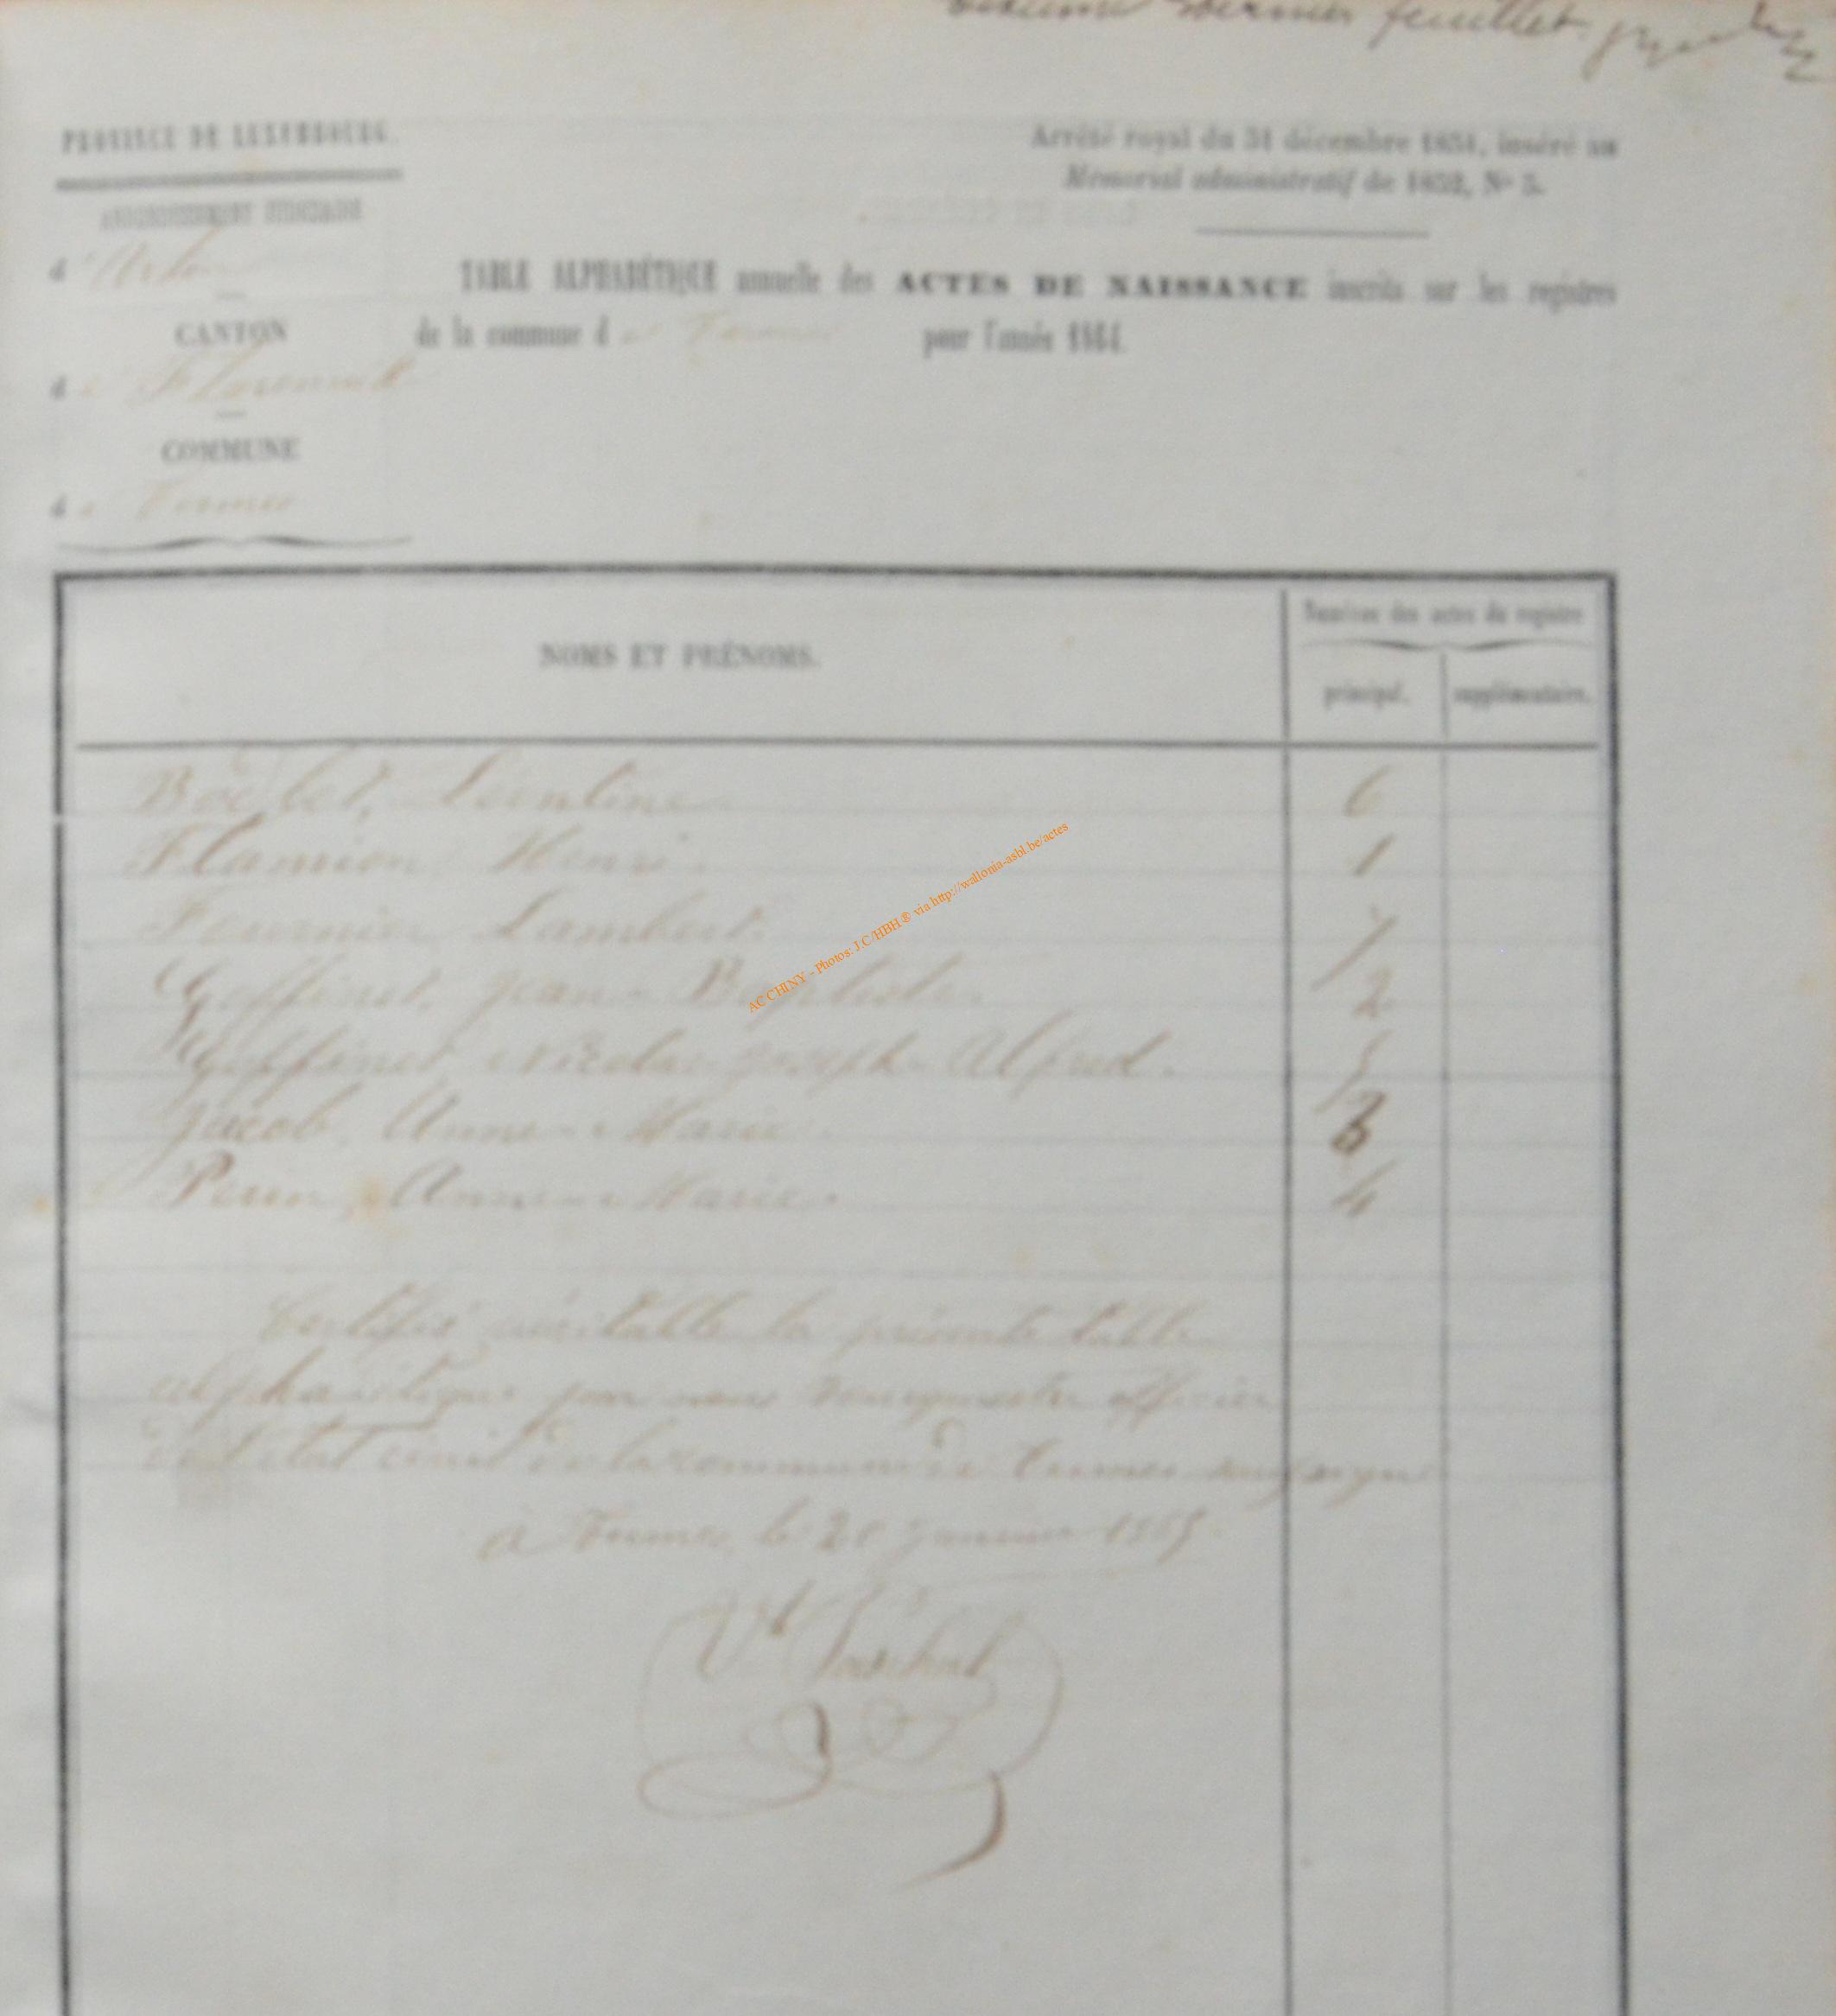 dernier feuillet.
PROVINCE DE LUXEMBOURG.
Arrêté royal du 31 décembre 1851, inséré au
Mémorial administratif de 1852, No 5.
ARRONDISSEMENT JUDICIAIRE
d'Arlon
TABLE ALPHABÉTIQUE annuelle des ACTES DE NAISSANCE inscrits sur les registres
de la commune de Termes pour l'année 1864.
CANTON
de Florenville
COMMUNE
de Termes
NOMS ET PRÉNOMS.
Numéros des actes du registre
principal.
supplémentaire.
Léontine 6
Flamion Henri. 1
Fournier Lambert. 7
Goffinet, Jean-Baptiste. 2
Goffinet Nicolas-Joseph-Alfred. 5
Jacob, Anne-Marie. 3
Perin, Anne-Marie. 4
Certifié véritable la présente table
alphabétique par nous bourgmestre officier
de l'état civil de la commune de Termes
à Termes, le 20 janvier 1865.
ACCHINY - Photos: J.C/HBH ® via http://wallonia-asbl.be/actes